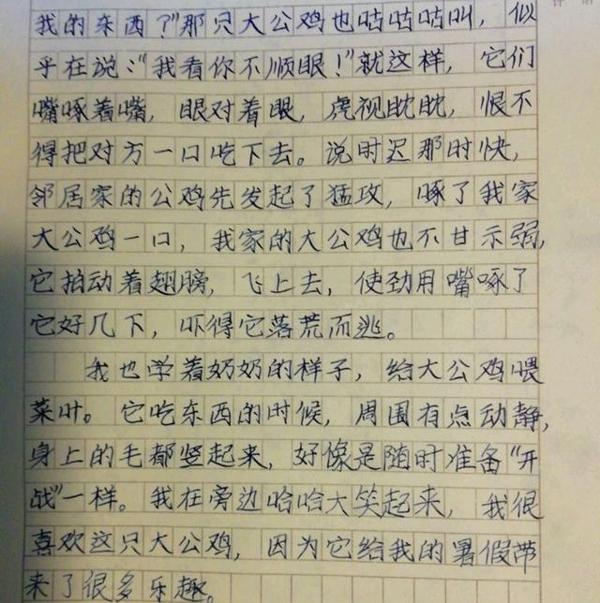 我的东西?"那只大公鸡也咕咕咕叫，似
乎在说："我看你不顺眼！"就这样，它们
嘴啄着嘴，眼对着眼，虎视眈眈，恨不
得把对方一口吃下去。说时迟那时快，
邻居家的公鸡先发起了猛攻，啄了我家
大公鸡一口，我家的大公鸡也不甘示弱，
它拍动着翅膀，飞上去，使劲用嘴啄了
它好几下，吓得它落荒而逃。
我也学着奶奶的样子，给大公鸡喂
菜叶。它吃东西的时候，周围有点动静，
身上的毛都竖起来，好像是随时准备"开
战"一样。我在旁边哈哈大笑起来，我很
喜欢这只大公鸡，因为它给我的暑假带
来了很多乐趣。